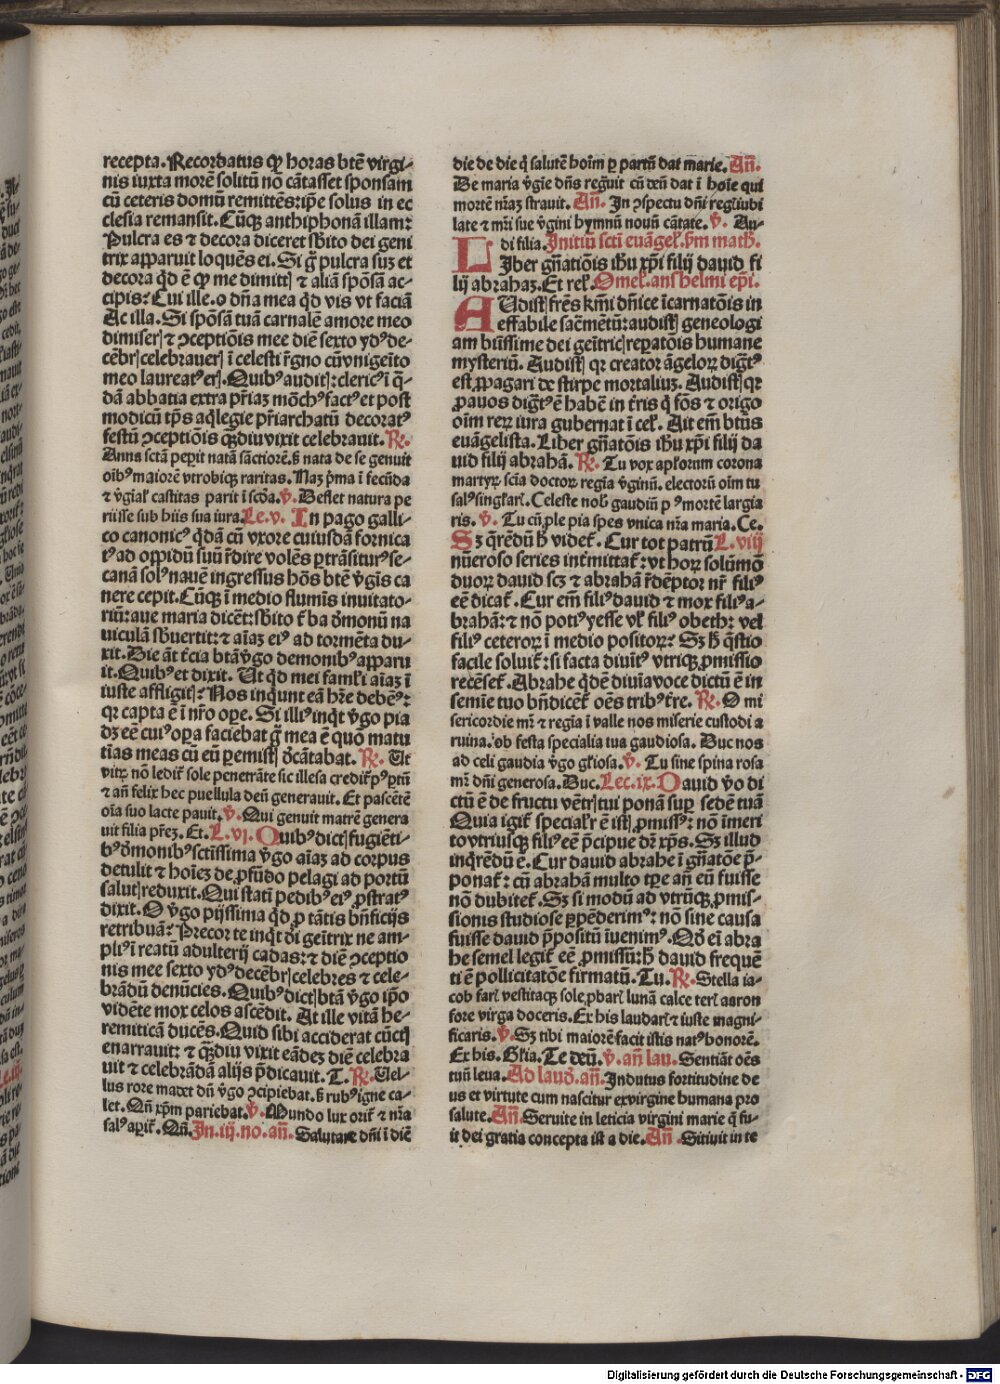 recepta. Recordatus ꝙ horas btē virgi-
nis iuxta morē solitū nō cātasset sponsam
cū ceteris domū remittēs: ip̄e solus in ec
clesia remansit. Cūqꝫ anthiphonā illam:
Pulcra es ⁊ decora diceret sb̄ito dei geni
trix apparuit loquēs ei. Si ḡ pulcra suꝫ et
decora qd̄ ē ꝙ me dimittꝭ ⁊ aliā spōsā ac-
cipis? Cui ille. o dn̄a mea qd̄ vis vt faciā
Ac illa. Si spōsā tuā carnalē amore meo
dimiserꝭ ⁊ ꝯceptiōis mee diē sexto ydꝰ de-
cēbrꝭ celebrauerꝭ ī celesti r̄gno cū vnigeīto
meo laureatꝰ erꝭ. Quibꝰ auditꝭ: clericꝰ ī q̄-
dā abbatia extra pr̄iaꝫ mōchꝰ factꝰ et post
modicū tp̄s aqlegie pr̄iarchatū decoratꝰ
festū ꝯceptiōis qꝫdiu vixit celebrauit. R̄.
Anna sctā peperit natā sāctiorē. s̄ nata de se genuit
oībꝰ maiorē vtrobiqꝫ raritas. Naꝫ pͥma ī fecūda
⁊ v̄gīal' castitas parit ī scd̄a. v̄. Besset natura pe
riisse sub hiis sua iura. Le. v. In pago galli-
co canonicꝰ qdā cū vxore cuiusdā fornica
tꝰ ad oppidū suū r̄dire volēs ꝑtrāsiturꝰ se-
canā solꝰ nauē ingressus hōs btē v̄gīs ca
nere cepit. Cūqꝫ ī medio flumīs inuitato-
riū: aue maria dicēt: sb̄ito t̄ba dͤmonū na
uiculā sb̄uertit: ⁊ aīaꝫ eiꝰ ad tormēta du-
xit. Die āt t̄cia btā v̄go demonibꝰ apparu
it. Quibꝰ et dixit. Ut qd̄ mei faml'i aīaꝫ ī
iuste affligitꝭ? Nos inquiunt eā hr̄e debēꝰ:
qꝛ capta ē ī nr̄o oꝑe. Si illiꝰ inqͥt v̄go pia
dꝫ eē cuiꝰ oꝑa faciebat ḡ mea ē quō matu
tīas meas cū eū ꝑemistꝭ dͤcātabat. R̄. Ut
vitꝝ nō leditͬ sole penetrāte sic illesa creditͬ pꝰ ꝑtū
⁊ an̄ felix hec puellula deū generauit. Et pascētē
oīa suo lacte pauit. v̄. Qui genuit matrē genera
uit filia pr̄eꝫ. Et. L. vi. Quibꝰ dictꝭ fugiēti-
bꝰ dͤmonibꝰ sctīssima v̄go aīaꝫ ad corpus
detulit ⁊ hoīeꝫ de ꝓfūdo pelagi ad portū
salutꝭ reduxit. Qui statī pedibꝰ eiꝰ ꝓstratꝰ
dixit. O v̄go pijssima qd̄ ꝓ tātis bn̄ficijs
retribuā? Precor te inqͥt di geītrix ne am-
pliꝰ ī reatū adulterij cadas: ⁊ diē ꝯceptio
nis mee sexto ydꝰ decēbrꝭ celebres ⁊ cele-
brādū denūcies. Quibꝰ dictꝭ btā v̄go ip̄o
vidēte mox celos ascēdit. At ille vitā he-
remiticā ducēs. Quid sibi acciderat cūctꝭ
enarrauit: ⁊ qꝫdiu vixit eādeꝫ diē celebra
uit ⁊ celebrādā alijs p̄dicauit. T. R̄. Uel-
lus rore madet dū v̄go ꝯcipiebat. s̄ rubꝰ igne ca-
let. Qn̄ xp̄m pariebat. v̄. Mundo lux oritͬ ⁊ nr̄a
salꝰ aꝑitͬ. Qn̄. In. iij. no. an̄. Salutare dn̄i ī diē
die de die q̄ salutē hoīm ꝑ partū dat marie. An̄.
De maria v̄gīe dn̄s reg̅uit cū deū dat ī hoīe qui
mortē nr̄aꝫ strauit. An̄. In ꝯspectu dn̄i regꝭ iubi
late ⁊ mr̄i sue v̄gini hymnū nouū cātate. v̄. Au-
di filia. Initiū scti euāgel'. ẜm math̄.
LIber gn̄atiōis ih̄u xp̄i filij dauid fi
lij abrahaꝫ. Et rel'. Omel'. anshelmi ep̄i.
AUdistꝭ fr̄es kmī dn̄ice īcarnatōis in
effabile sac̄mētū: audistꝭ geneologi
am bt̄issime dei geītricꝭ reparatōis humane
mysteriū. Audistꝭ qꝛ creator āgeloꝝ digtꝰ
est ꝓpagari de stirpe mortaliuꝫ. Audistꝭ qꝛ
ꝓauos digtꝰ ē habē in t̄ris q̄ fōs ⁊ origo
oīm reꝝ iura gubernat ī cel'. Ait em̄ btūs
euāgelista. Liber gn̄atōis ih̄u xp̄i filij da
uid filij abrahā. R̄. Tu vox apl'orum corona
martyꝝ scīa doctoꝝ regīa v̄ginū. electorū oīm tu
salꝰ singl'arꝭ. Celeste nob̄ gaudiū p ꝰ mortē largia
ris. v̄. Tu cū ꝓle pia spes vnica nr̄a maria. Ce.
Sꝫ q̄rēdū h̄ videtͬ. Cur tot patrū L. viij
nūeroso series int̄mittatͬ: vt hoꝝ solūmō
duoꝝ dauid scꝫ ⁊ abrahā r̄dēptor nr̄ filiꝰ
eē dicatͬ. Cur em̄ filiꝰ dauid ⁊ mox filiꝰ a-
brahā: ⁊ nō potiꝰ yesse vl' filiꝰ obeth: vel
filiꝰ ceteroꝝ ī medio positoꝝ? Sꝫ h̄ q̄stio
facile soluitͬ: si facta diuītꝰ vtriqꝫ ꝓmissio
recēsetͬ. Abrahe qdē diuīa voce dictū ē in
semīe tuo bn̄dicētͬ oēs tribꝰ t̄re. R̄. O mi
sericordie mr̄ ⁊ regīa ī valle nos miserie custodi a
ruina. ob festa specialia tua gaudiosa. Duc nos
ad celi gaudia v̄go gl'iosa. v̄. Tu sine spina rosa
mr̄ dn̄i generosa. Duc. Lec. ix. Dauid v̄o di
ctū ē de fructu vētrꝭ tui ponā suꝑ sedē tuā
Quia igitͬ specialꝭ ē istꝭ ꝓmissꝰ: nō īmeri
to vtriusqꝫ filiꝰ eē p̄cipue dꝛ xp̄s. Sꝫ illud
inq̄rēdū ē. Cur dauid abrahe ī gn̄atōe p̄-
ponatͬ: cū abrahā multo tꝑe an̄ eū fuisse
nō dubitetͬ. Sꝫ si modū ad vtrūqꝫ ꝓmis-
sionis studiose ꝑpēderimꝰ: nō sine causa
fuisse dauid p̄positū īuenimꝰ. Qd̄ eī abra
he semel legitͬ eē ꝓmissū: h̄ dauid frequē
tiꝰ ē pollicitatōe firmatū. Tu. R̄. Stella ia-
cob farꝭ vestitaqꝫ sole ꝓbarꝭ lunā calce terꝭ aaron
fore virga doceris. Ex his laudarꝭ ⁊ iuste magni-
ficaris. v̄. Sꝫ tibi maiorē facit istis natꝰ honorē.
Ex his. Gl'ia. Te deū. v̄. an̄ lau. Sentiāt oēs
tuū leua. Ad laud̄. an̄. Indutus fortitudine de
us et virtute cum nascitur ex virgine humana pro
salute. An̄. Seruite in leticia virgini marie q̄ fu-
it dei gratia concepta ista die. An̄. Sitiuit in te
Digitalisierung gefördert durch die Deutsche Forschungsgemeinschaft - DFG